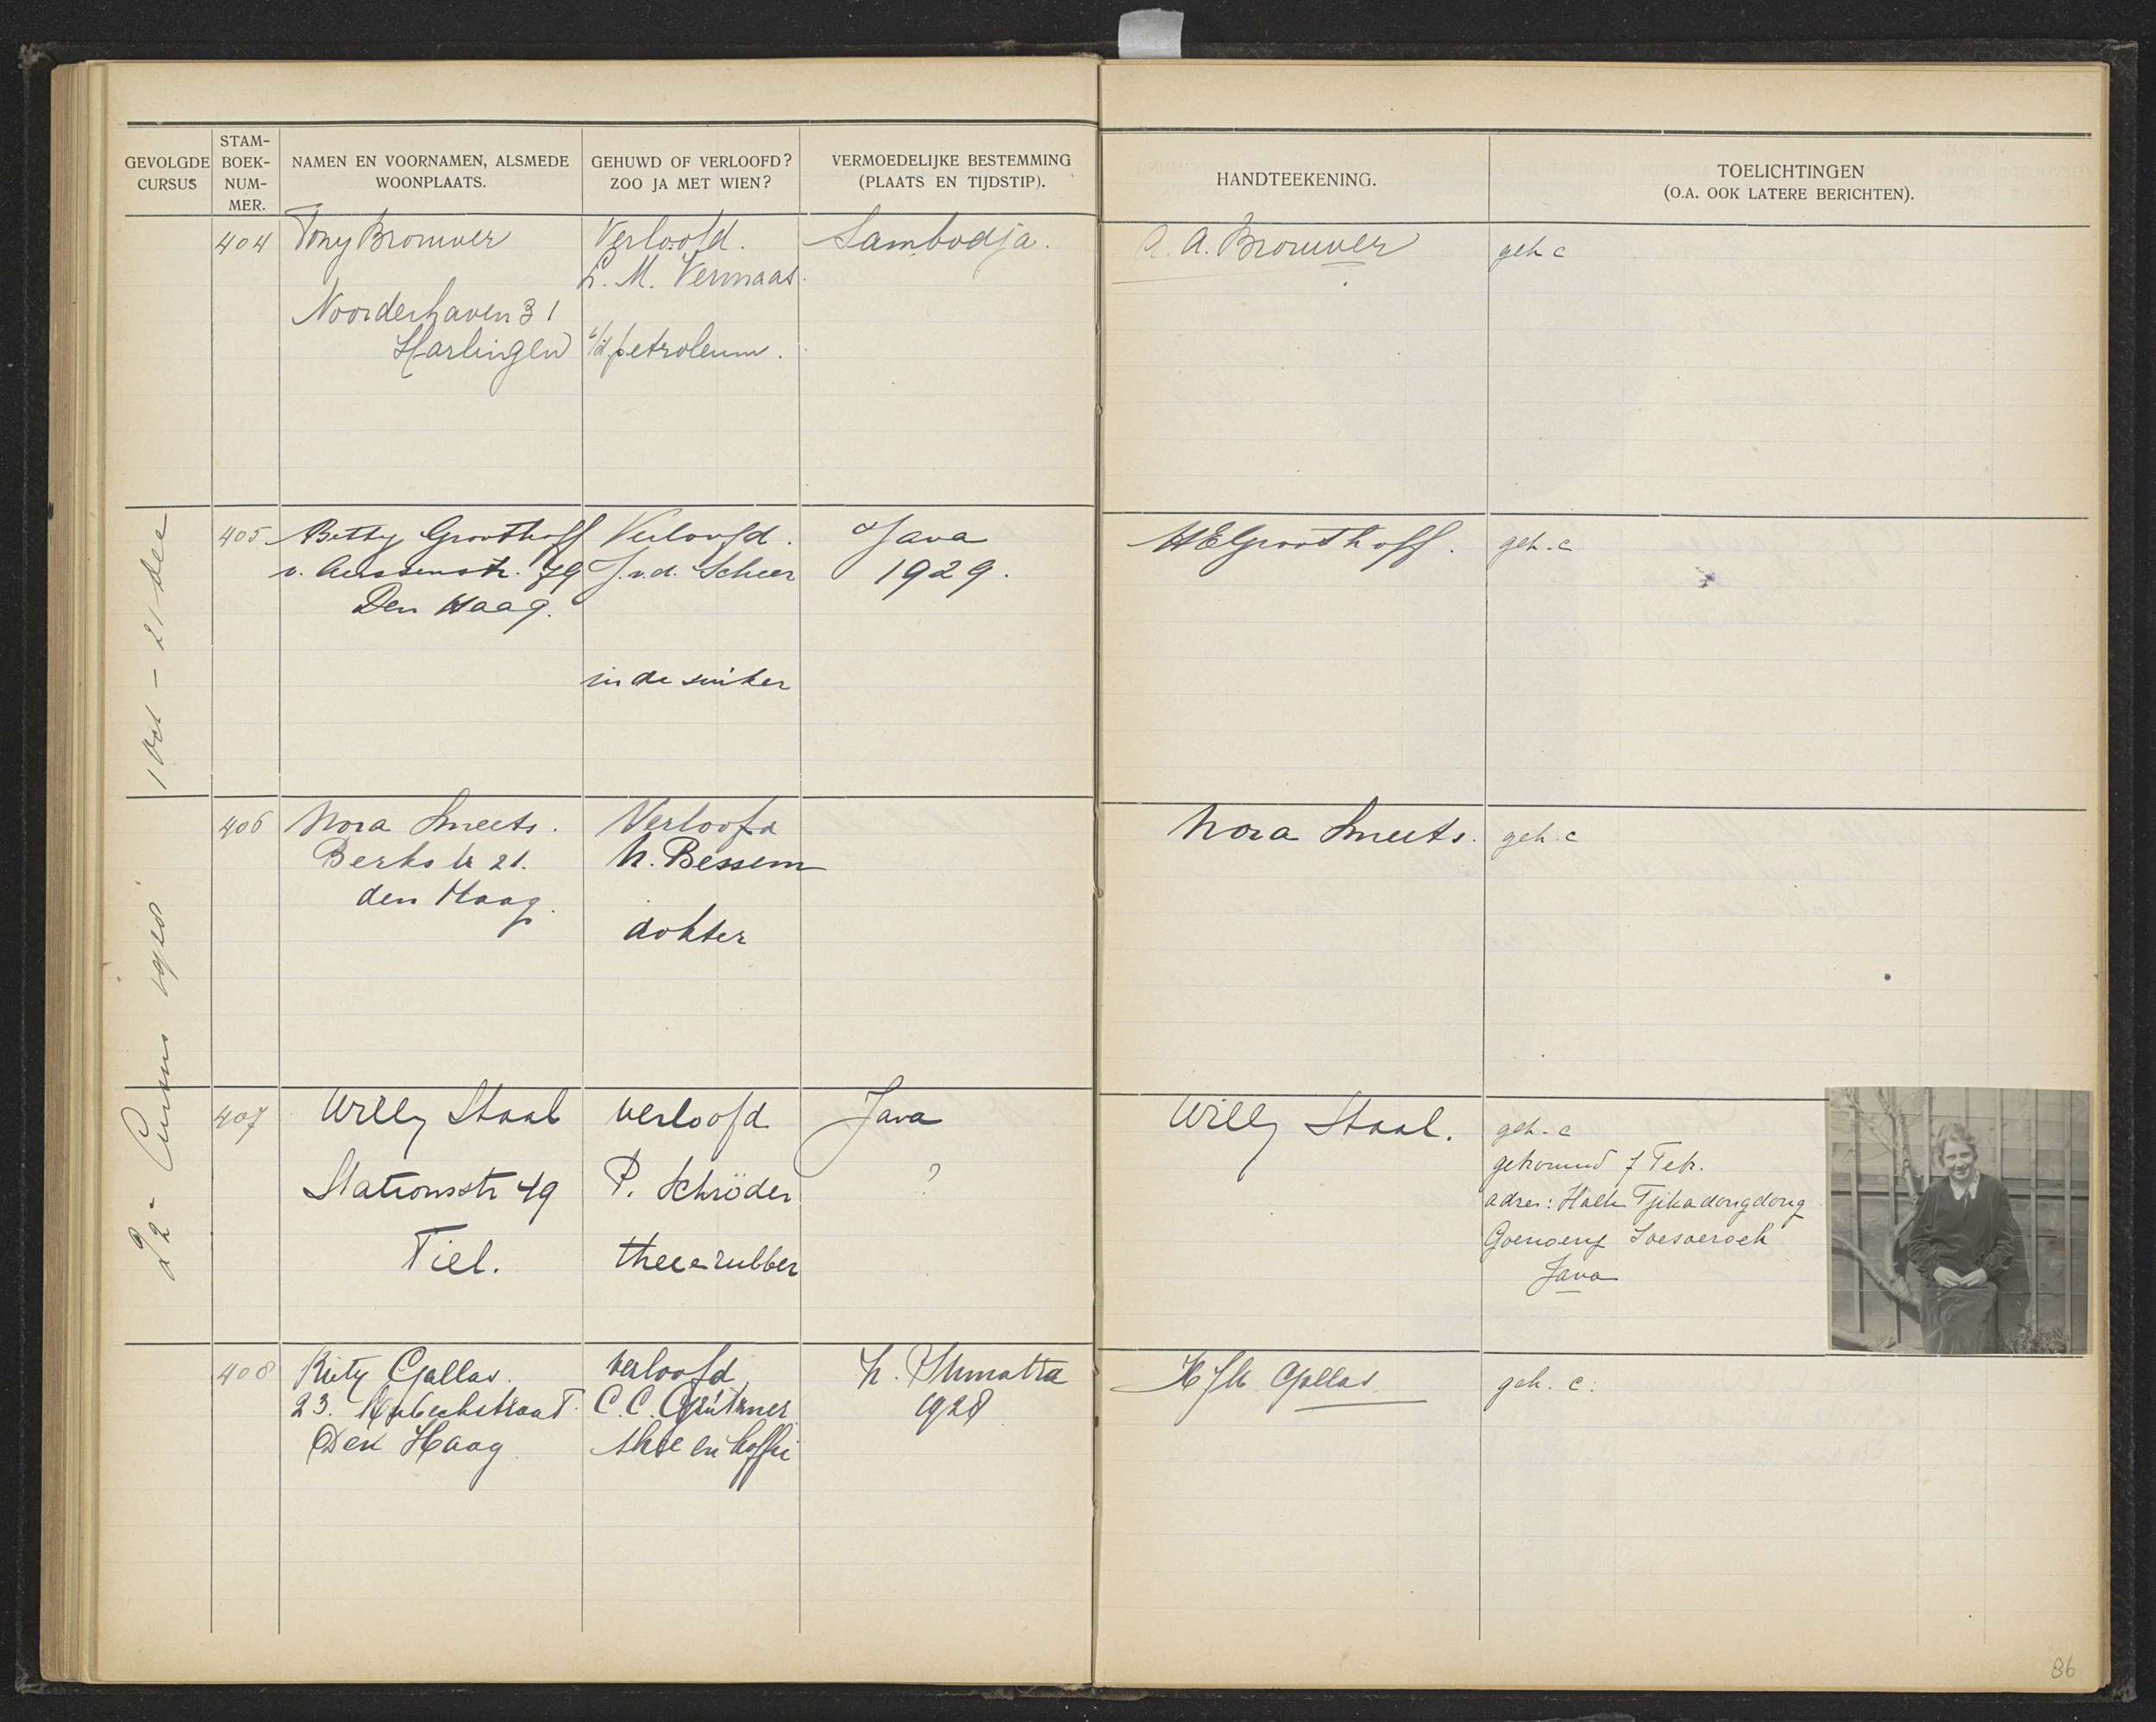 GEVOLGDE CURSUS
STAM-BOEK-NUM-MER.
NAMEN EN VOORNAMEN, ALSMEDE WOONPLAATS.
GEHUWD OF VERLOOFD? ZOO JA MET WIEN?
VERMOEDELIJKE BESTEMMING (PLAATS EN TIJDSTIP).
HANDTEEKENING.
TOELICHTINGEN
(O.A. OOK LATERE BERICHTEN).
22e Cursus 1928 1 Oct – 21 Dec
404 Tony Brouwer Verloofd. Sambodja. A. Brouwer geh c
M. Vermaas.
Noorderhaven 31
Harlingen i/d petroleum.
405 Betty Groothoff Verloofd. Java HEGroothoff. geh. c
v. Aerssenstr. 79 J. v.d. Scheer 1929.
Den Haag.
in de suiker
406 Nora Smeets. Verloofd Nora Smeets. geh. c
Berkstr 21. N. Bessem
den Haag.
dokter
407 Willy Staal verloofd Java Willy Staal. geh. c
Stationsstr 49 P. Schröder ? getrouwd 7 Febr.
adres: Tjikadongdong
Tiel. thee & rubber Goenoeng Soesoeroeh
Java
408 Gallas. verloofd N. Sumatra Gallas geh. c.
23. C.C. Grützner 1928
Den Haag thee en koffie
86